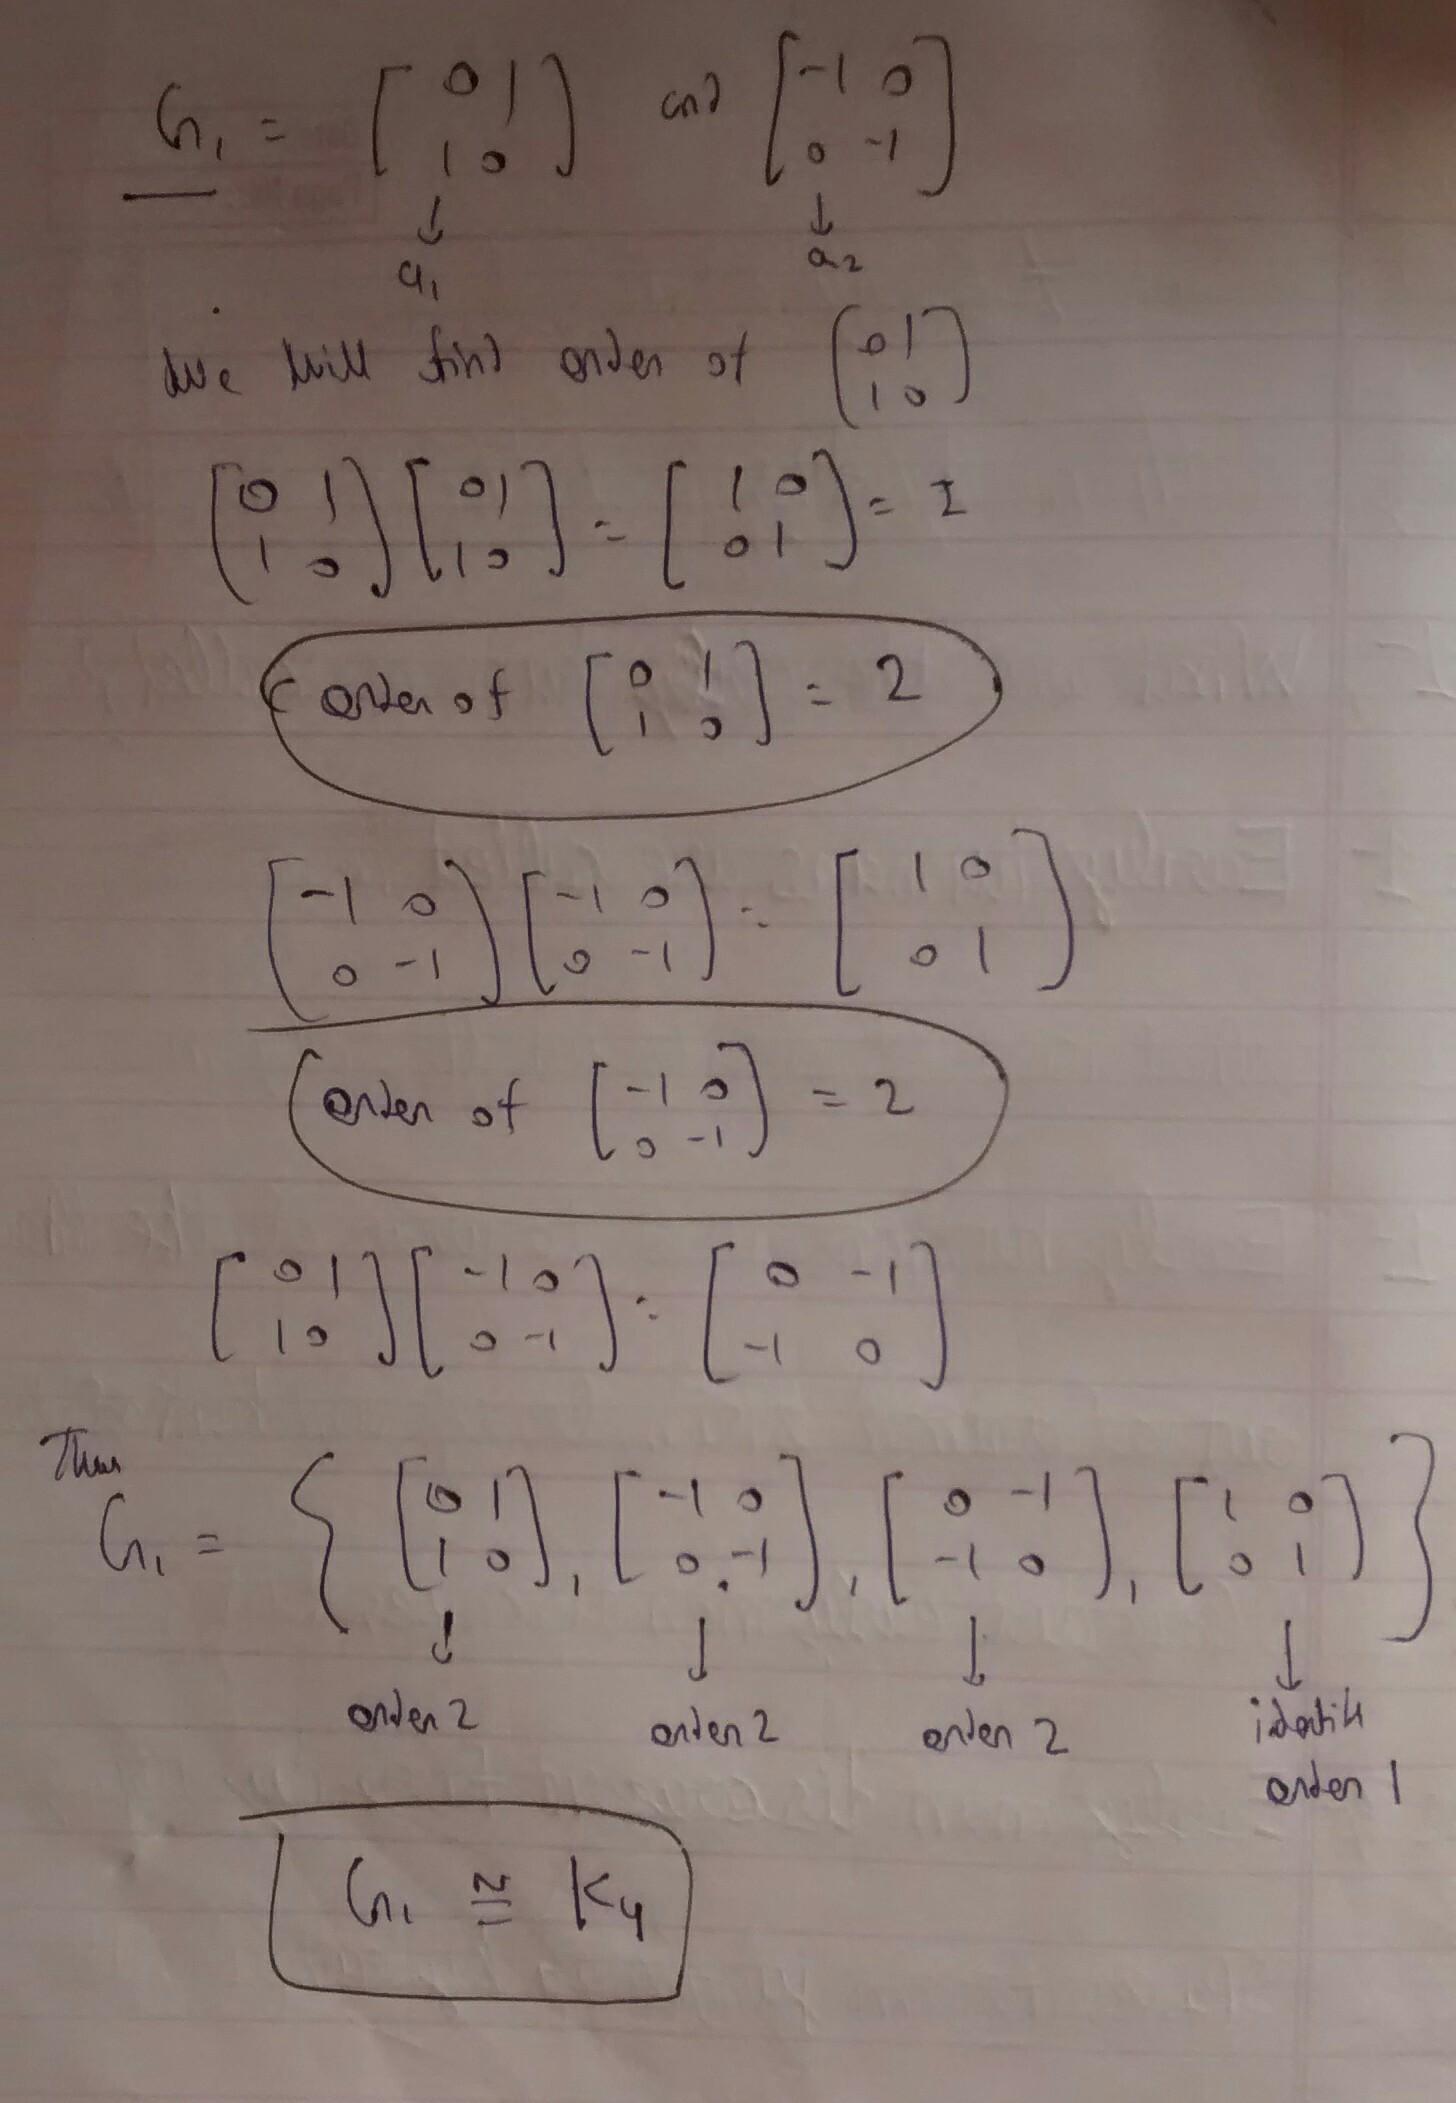 G₁ = [0 1; 1 0] and [-1 0; 0 -1]
↓ ↓
a₁ a₂
We will find order of [0 1; 1 0]
[0 1; 1 0] [0 1; 1 0] = [1 0; 0 1] = I
order of [0 1; 1 0] = 2
[-1 0; 0 -1] [-1 0; 0 -1] = [1 0; 0 1]
order of [-1 0; 0 -1] = 2
[0 1; 1 0] [-1 0; 0 -1] = [0 -1; -1 0]
Thus
G₁ = { [0 1; 1 0], [-1 0; 0 -1], [0 -1; -1 0], [1 0; 0 1] }
↓ ↓ ↓ ↓
order 2 order 2 order 2
order 1
G₁ ≅ K₄